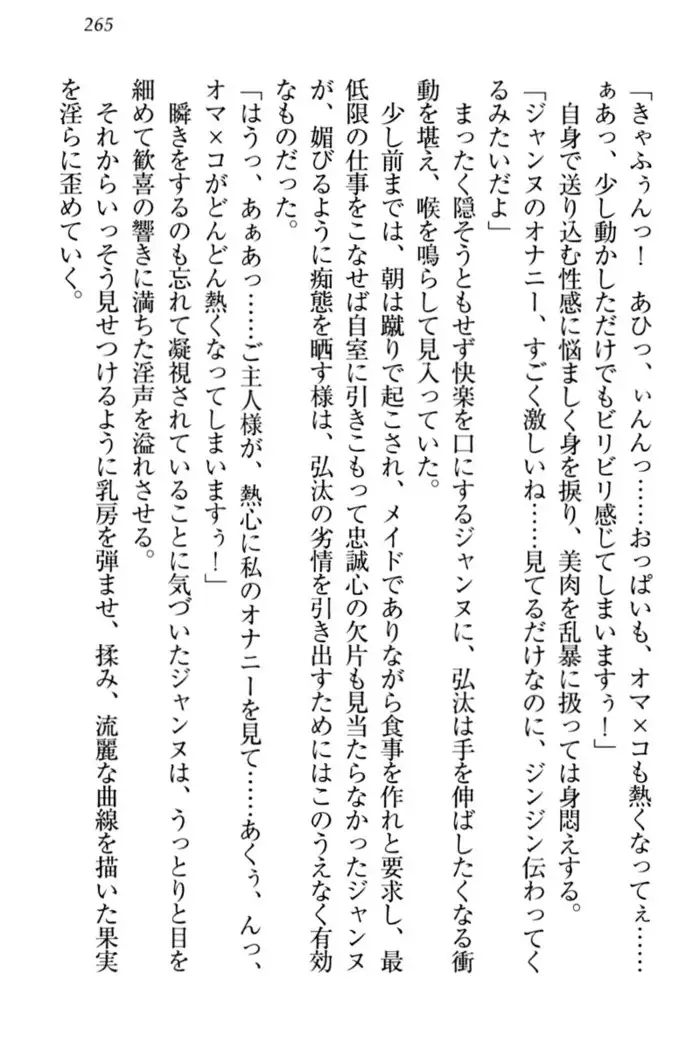 265
「きゃふぅんっ！　あひっ、ぃんんっ……おっぱいも、オマ×コも熱くなってぇ……
ぁあっ、少し動かしただけでもビリビリ感じてしまいますぅ！」
自身で送り込む性感に悩ましく身を捩り、美肉を乱暴に扱っては身悶えする。
「ジャンヌのオナニー、すごく激しいね……見てるだけなのに、ジンジン伝わってく
るみたいだよ」
まったく隠そうともせず快楽を口にするジャンヌに、弘汰は手を伸ばしたくなる衝
動を堪え、喉を鳴らして見入っていた。
少し前までは、朝は蹴りで起こされ、メイドでありながら食事を作れと要求し、最
低限の仕事をこなせば自室に引きこもって忠誠心の欠片も見当たらなかったジャンヌ
が、媚びるように痴態を晒す様は、弘汰の劣情を引き出すためにはこのうえなく有効
なものだった。
「はうっ、あぁあっ……ご主人様が、熱心に私のオナニーを見て……あくぅ、んっ、
オマ×コがどんどん熱くなってしまいますぅ！」
瞬きをするのも忘れて凝視されていることに気づいたジャンヌは、うっとりと目を
細めて歓喜の響きに満ちた淫声を溢れさせる。
それからいっそう見せつけるように乳房を弾ませ、揉み、流麗な曲線を描いた果実
を淫らに歪めていく。